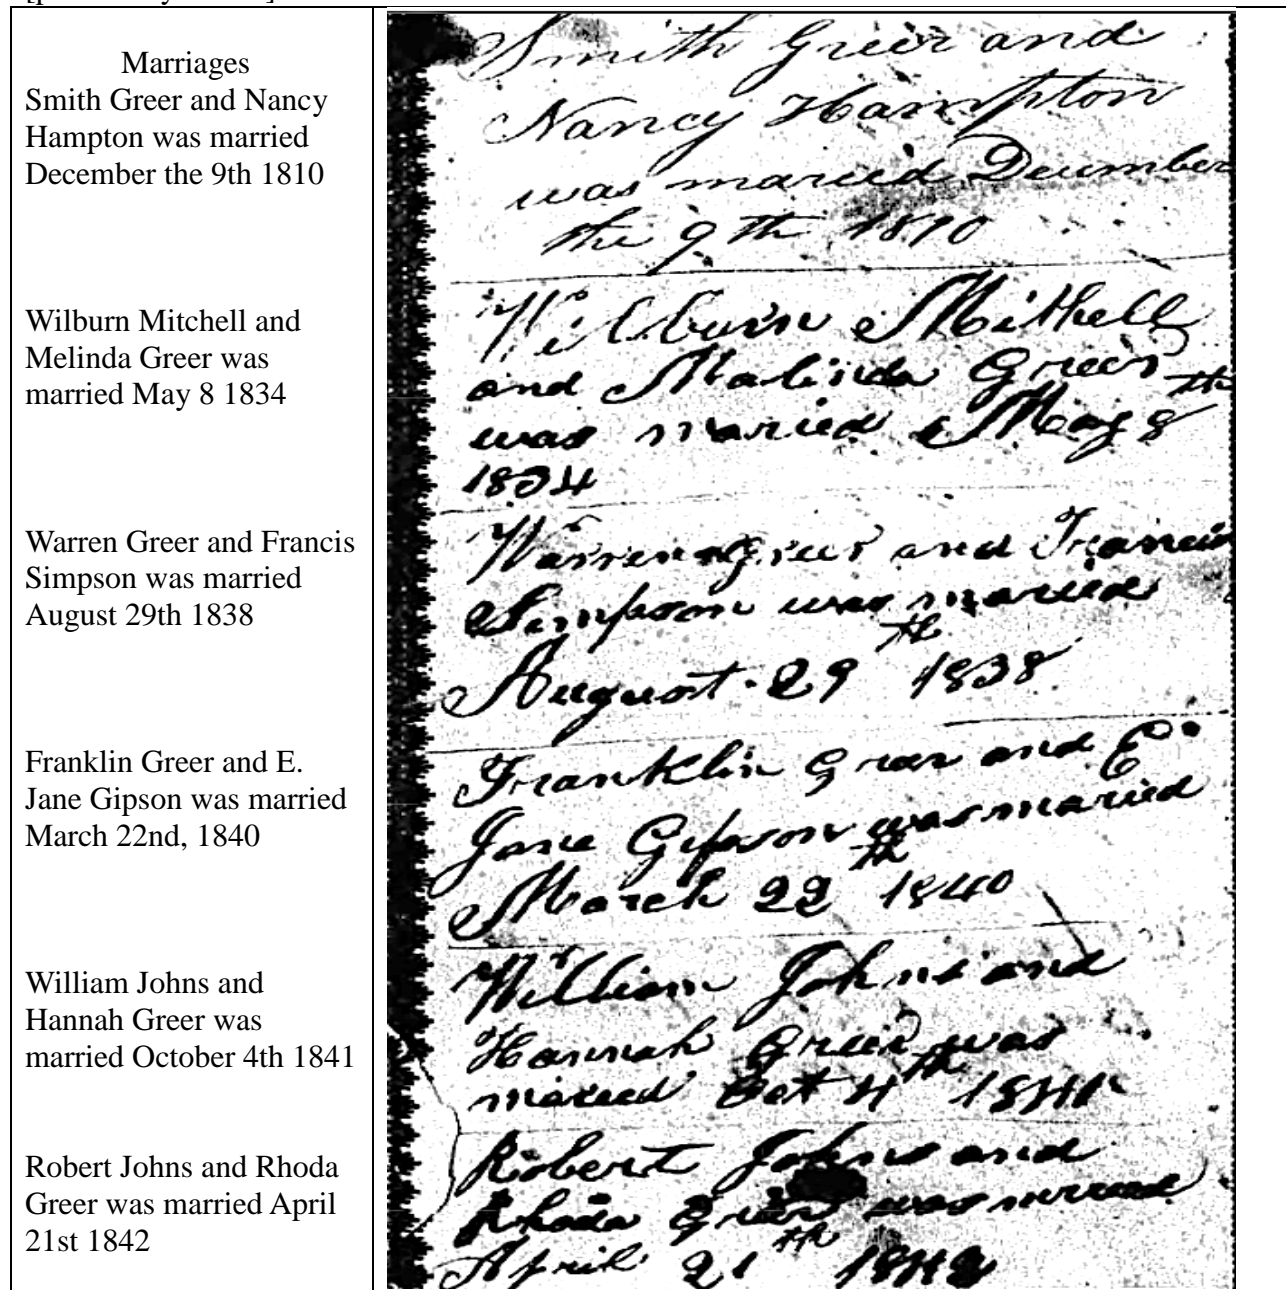 Marriages
Smith Greer and Nancy
Hampton was married
December the 9th 1810
Wilburn Mitchell and
Melinda Greer was
married May 8 1834
Warren Greer and Francis
Simpson was married
August 29th 1838
Franklin Greer and E.
Jane Gipson was married
March 22nd, 1840
William Johns and
Hannah Greer was
married October 4th 1841
Robert Johns and Rhoda
Greer was married April
21st 1842
Smith Greer and
Nancy Hampton
was maried December
the 9th 1810
Wilburn Mithell
and Malinda Greer
was maried May 8th
1834
Warren Greer and Francis
Simpson was maried
August 29th 1838
Franklin Greer and E
Jane Gipson was maried
March 22th 1840
William Johns and
Hannah Greer was
maried Oct 4th 1841
Robert Johns and
Rhoda Greer was
April 21th 1842